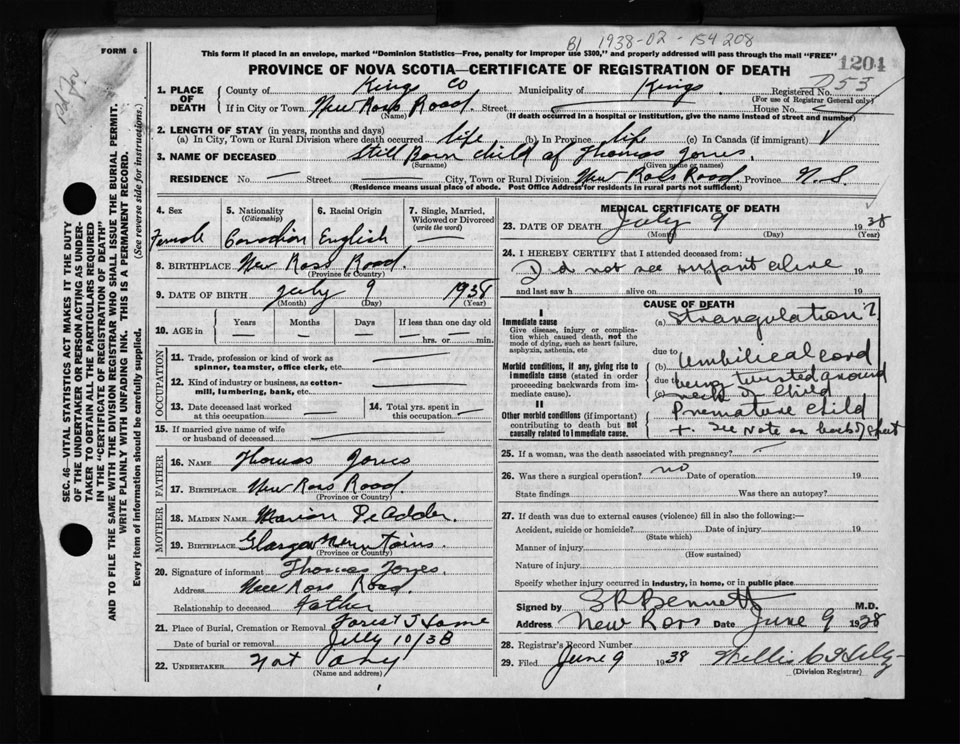 B1 1938-02-154208
FORM 6
This form if placed in an envelope, marked "Dominion Statistics—Free, penalty for improper use $300," and properly addressed will pass through the mail "FREE"
1204
PROVINCE OF NOVA SCOTIA—CERTIFICATE OF REGISTRATION OF DEATH
1. PLACE OF DEATH
County of Kings Co Municipality of Kings Registered No. 253
(For use of Registrar General only)
If in City or Town New Ross Road. Street House No.
(Name) (If death occurred in a hospital or institution, give the name instead of street and number)
2. LENGTH OF STAY (in years, months and days)
(a) In City, Town or Rural Division where death occurred life (b) In Province life (c) In Canada (if immigrant)
3. NAME OF DECEASED Still Born child of Thomas Jones.
(Surname) (Given name or names)
RESIDENCE No. — Street City, Town or Rural Division New Ross Road Province N.S.
(Residence means usual place of abode. Post Office Address for residents in rural parts not sufficient)
4. Sex Female
5. Nationality (Citizenship) Canadian
6. Racial Origin English
7. Single, Married, Widowed or Divorced (write the word) —
8. BIRTHPLACE New Ross Road.
(Province or Country)
9. DATE OF BIRTH July 9 1938
(Month) (Day) (Year)
10. AGE in Years Months Days If less than one day old
— — — — hrs. or — min.
OCCUPATION
11. Trade, profession or kind of work as spinner, teamster, office clerk, etc.
12. Kind of industry or business, as cotton-mill, lumbering, bank, etc.
13. Date deceased last worked at this occupation —
14. Total yrs. spent in this occupation —
15. If married give name of wife or husband of deceased
FATHER
16. NAME Thomas Jones
17. BIRTHPLACE New Ross Road.
(Province or Country)
MOTHER
18. MAIDEN NAME Marion DeAdder.
19. BIRTHPLACE Mountains
(Province or Country)
20. Signature of informant Thomas Jones.
Address New Ross Road.
Relationship to deceased Father
21. Place of Burial, Cremation or Removal Forest Home
Date of burial or removal July 10/38
22. UNDERTAKER Not any
(Name and address)
MEDICAL CERTIFICATE OF DEATH
23. DATE OF DEATH July 9 1938
(Month) (Day) (Year)
24. I HEREBY CERTIFY that I attended deceased from:
I do not see infant alive 19
and last saw h alive on 19
CAUSE OF DEATH
I
Immediate cause
Give disease, injury or complication which caused death, not the mode of dying, such as heart failure, asphyxia, asthenia, etc
(a) Strangulation?
due to
Morbid conditions, if any, giving rise to immediate cause (stated in order proceeding backwards from immediate cause).
(b) Umbilical cord
due to being twisted around
(c) neck of child
II
Other morbid conditions (if important) contributing to death but not causally related to immediate cause.
Premature child
+ see note on back of sheet
25. If a woman, was the death associated with pregnancy?
26. Was there a surgical operation? no Date of operation
State findings Was there an autopsy?
27. If death was due to external causes (violence) fill in also the following:—
Accident, suicide or homicide? Date of injury 19
(State which)
Manner of injury
(How sustained)
Nature of injury
Specify whether injury occurred in industry, in home, or in public place
Signed by S R Bennett M.D.
Address New Ross Date June 9 1938
28. Registrar's Record Number
29. Filed June 9 1938 Willis
(Division Registrar)
SEC. 46—VITAL STATISTICS ACT MAKES IT THE DUTY
OF THE UNDERTAKER OR PERSON ACTING AS UNDER-
TAKER TO OBTAIN ALL THE PARTICULARS REQUIRED
IN THE "CERTIFICATE OF REGISTRATION OF DEATH"
AND TO FILE THE SAME WITH THE DIVISION REGISTRAR WHO SHALL ISSUE THE BURIAL PERMIT.
WRITE PLAINLY WITH UNFADING INK. THIS IS A PERMANENT RECORD.
Every item of information should be carefully supplied. (See reverse side for instructions.)